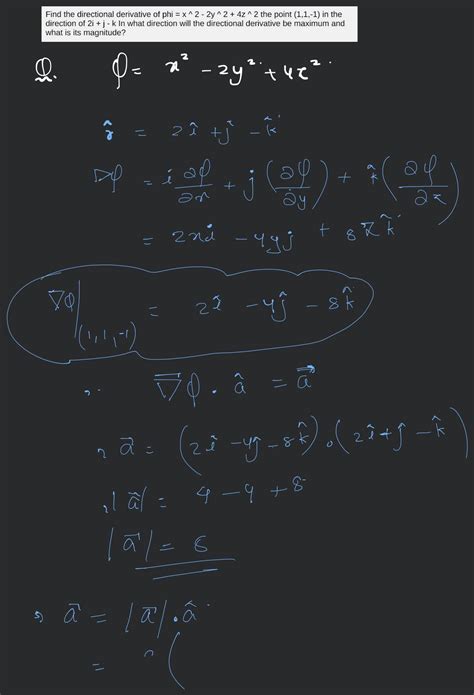 Find the directional derivative of phi = x ^ 2 - 2y ^ 2 + 4z ^ 2 the point (1,1,-1) in the
direction of 2i + j - k In what direction will the directional derivative be maximum and
what is its magnitude?
Q. φ = x² - 2y² + 4z²
= 2î + ĵ - k̂
∇φ = i ∂φ/∂x + j (∂φ/∂y) + k̂ (∂φ/∂z)
= 2xi - 4yj + 8z k̂
∇φ|(1,1,-1) = 2î - 4ĵ - 8k̂
∇φ · â = a⃗
a⃗ = (2î - 4ĵ - 8k̂) · (2î + ĵ - k̂)
|a⃗| = 4 - 4 + 8
|a⃗| =
a⃗ = |a⃗| · â
= (